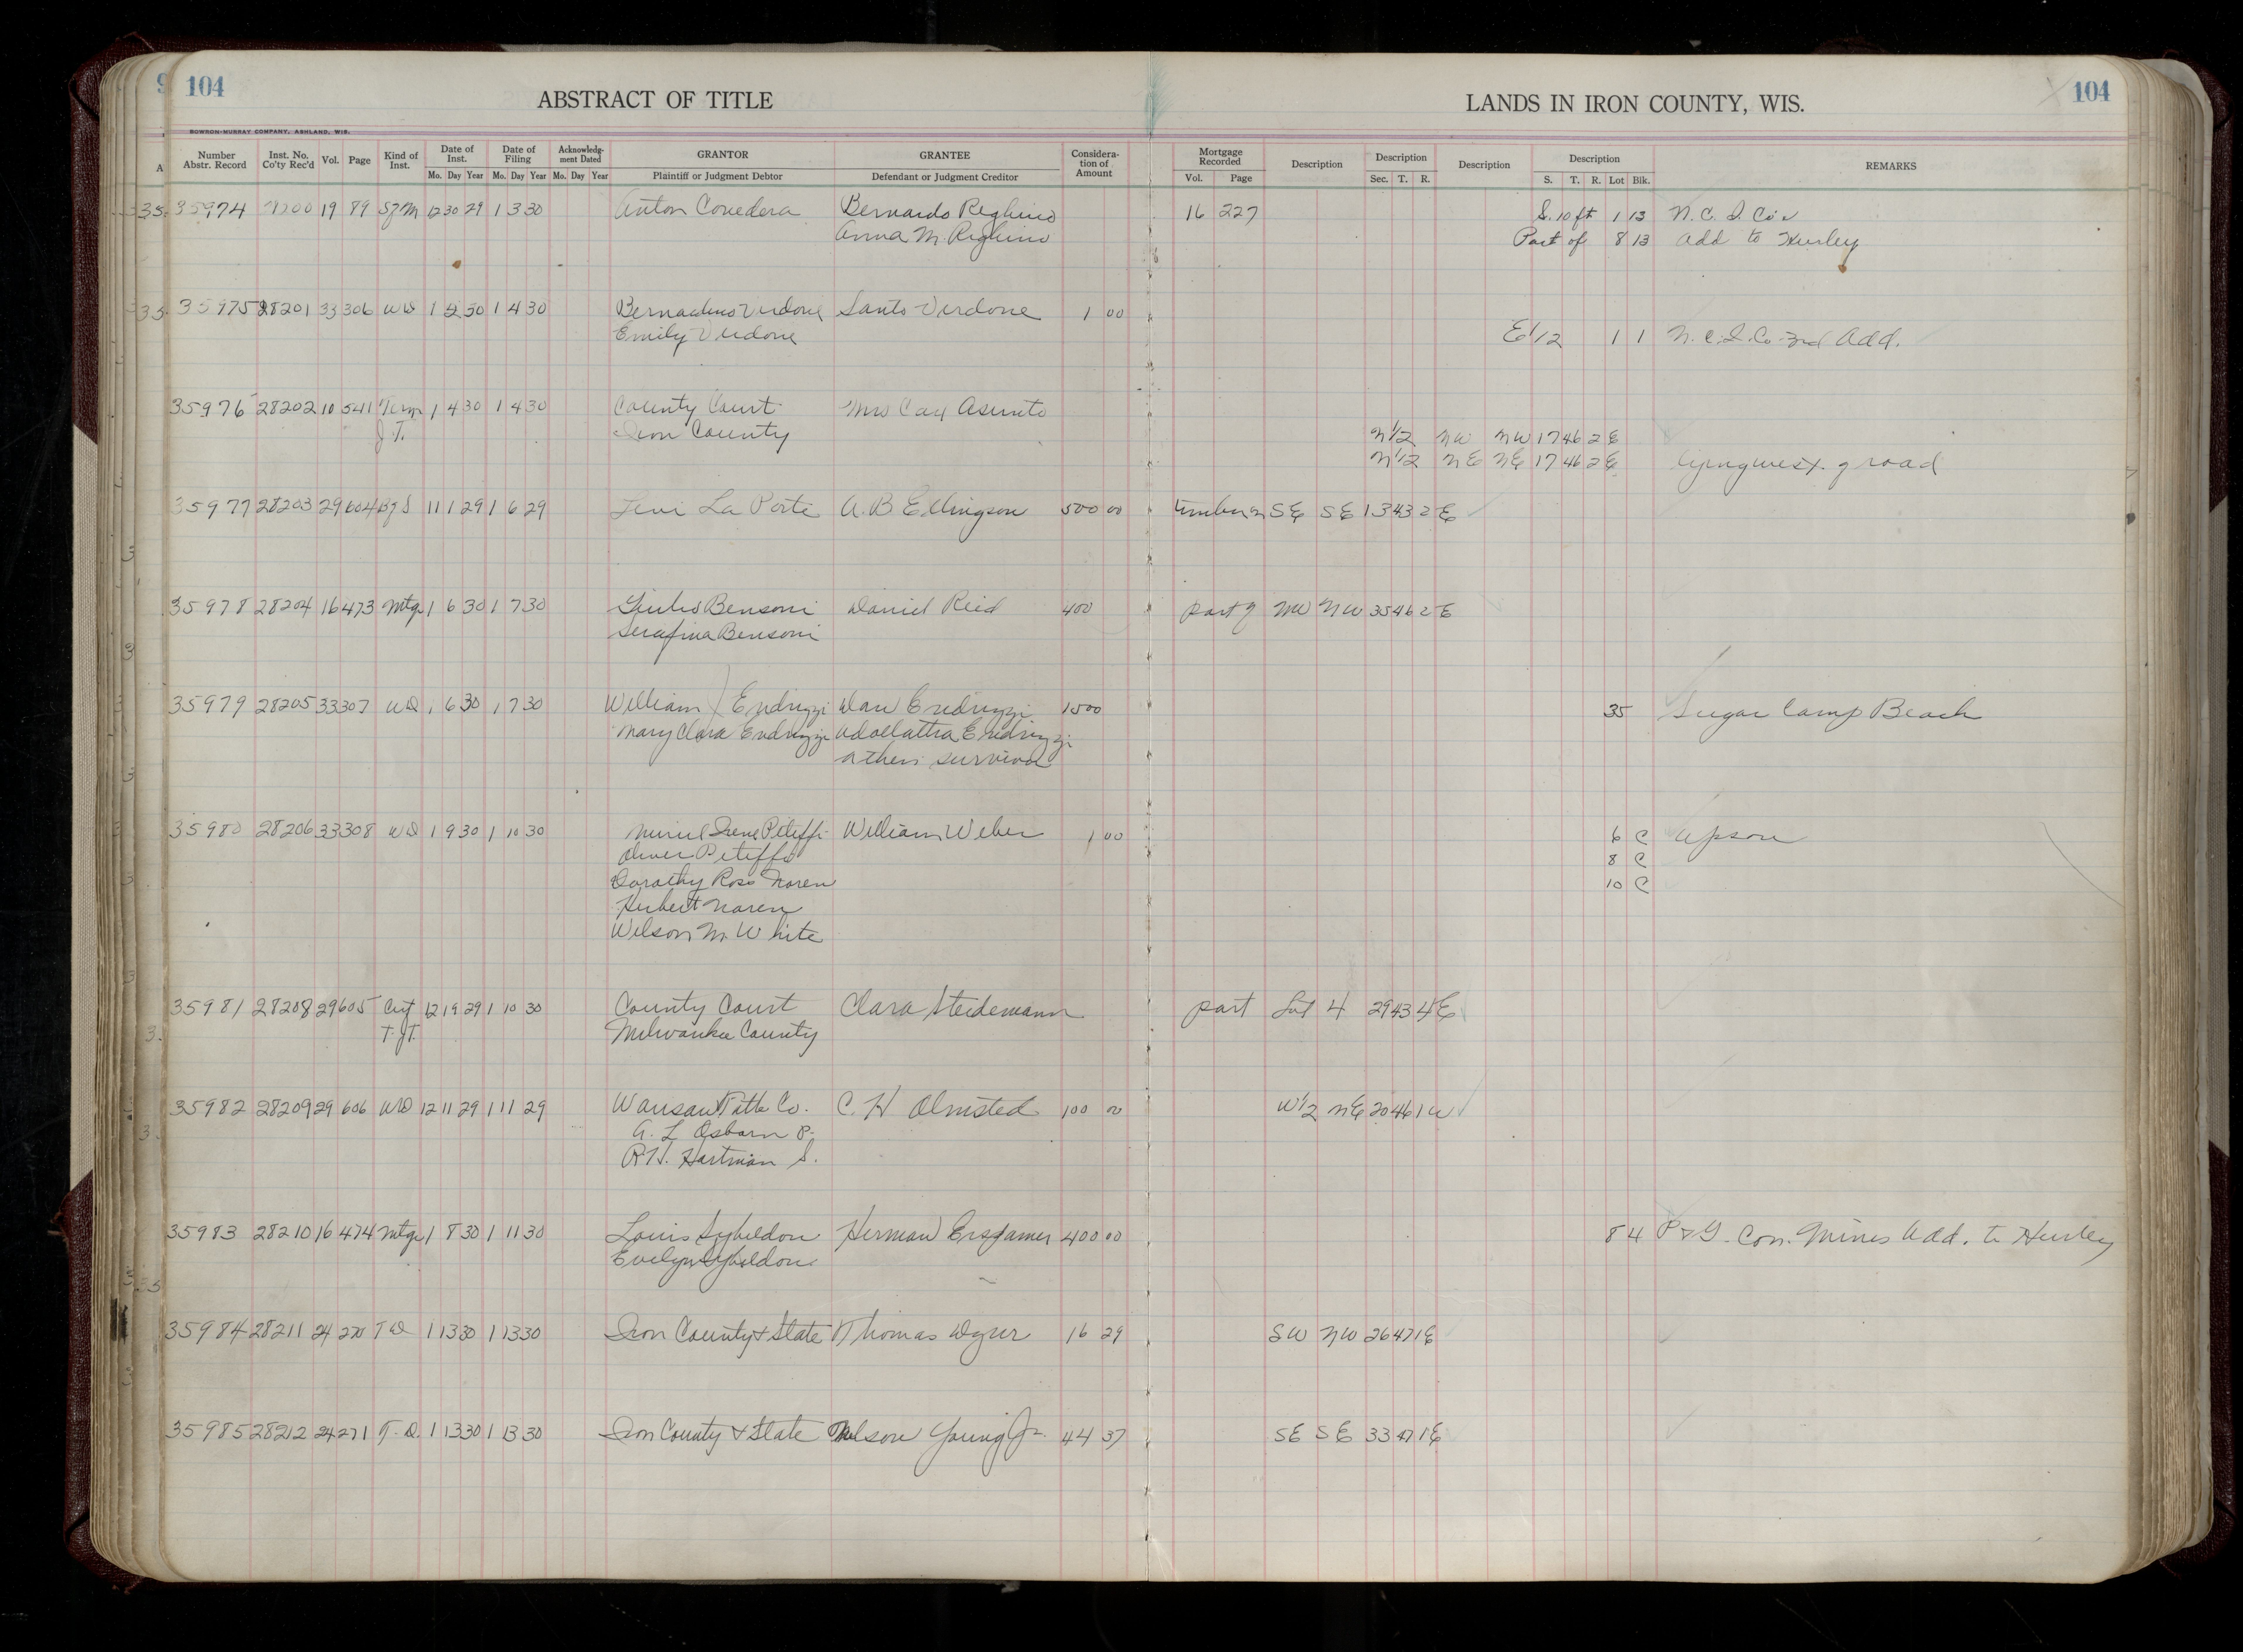 104
ABSTRACT OF TITLE
LANDS IN IRON COUNTY, WIS.
104
BOWRON-MURRAY COMPANY, ASHLAND, WIS.
Number Abstr. Record Inst. No. Co'ty Rec'd Vol. Page Kind of Inst. Date of Inst. Mo. Day Year Date of Filing Mo. Day Year Acknowledg-ment Dated Mo. Day Year GRANTOR Plaintiff or Judgment Debtor GRANTEE Defendant or Judgment Creditor Considera-tion of Amount Mortgage Recorded Vol. Page Description Description Sec. T. R. Description Description S. T. R. Lot Blk. REMARKS
35974 19 89 SfM 12 30 29 1 3 30 Anton Conedera Bernardo Reghino 16 227 S. 10 ft 1 13 N. C. I. Co's
Anna M. Reghino Part of 8 13 Add to Hurley
35975 28201 33 306 WD 1 30 1 4 30 Bernadino Verdone Santo Verdone 1 00
Emily Verdone E 1/2 1 1 N. C. I. Co. Add.
35976 28202 10 541 Term 1 4 30 1 4 30 County Court Asunto
J. T. Iron County N 1/2 NW NW 17 46 2 E
N 1/2 NE NE 17 46 2 E lying west of road
35977 28203 29 604 1 1 29 1 6 29 Levi La Porte A. B. Ellingson 500 00 timber on SE SE 13 43 2 E
35978 28204 16 473 Mtge 1 6 30 1 7 30 Giulio Bensoni Daniel Reid 400 part of NW NW 35 46 2 E
Serafina Bensoni
35979 28205 33 307 WD 1 6 30 1 7 30 William Endrizzi Dan Endrizzi 1500 35 Sugar Camp Beach
Mary Clara Endrizzi Endrizzi
survivor
35980 28206 33 308 WD 1 9 30 1 10 30 Irene William Weber 1 00 6 C Upson
Oliver 8 C
Dorothy Ross Noren 10 C
Herbert Noren
Wilson M White
35981 28208 29 605 Cert 12 19 29 1 10 30 County Court Clara Steidemann part Lot 4 29 43 4 E
T. J. T. Milwaukee County
35982 28209 29 606 WD 12 11 29 1 11 29 Wausau Title Co. C. H Olmsted 100 00 W 1/2 NE 20 46 1 W
A. L Osborn P.
R H. Hartman S.
35983 28210 16 474 Mtge 1 8 30 1 11 30 Louis Sybeldon Herman Erspamer 400 00 8 4 P & G. Con. Mines Add. to Hurley
Evelyn Sybeldon
35984 28211 24 270 T D 1 13 30 1 13 30 Iron County & State Thomas Dyer 16 29 SW NW 26 47 1 E
35985 28212 24 271 T. D. 1 13 30 1 13 30 Iron County & State Nelson Young Jr. 44 37 SE SE 33 47 1 E